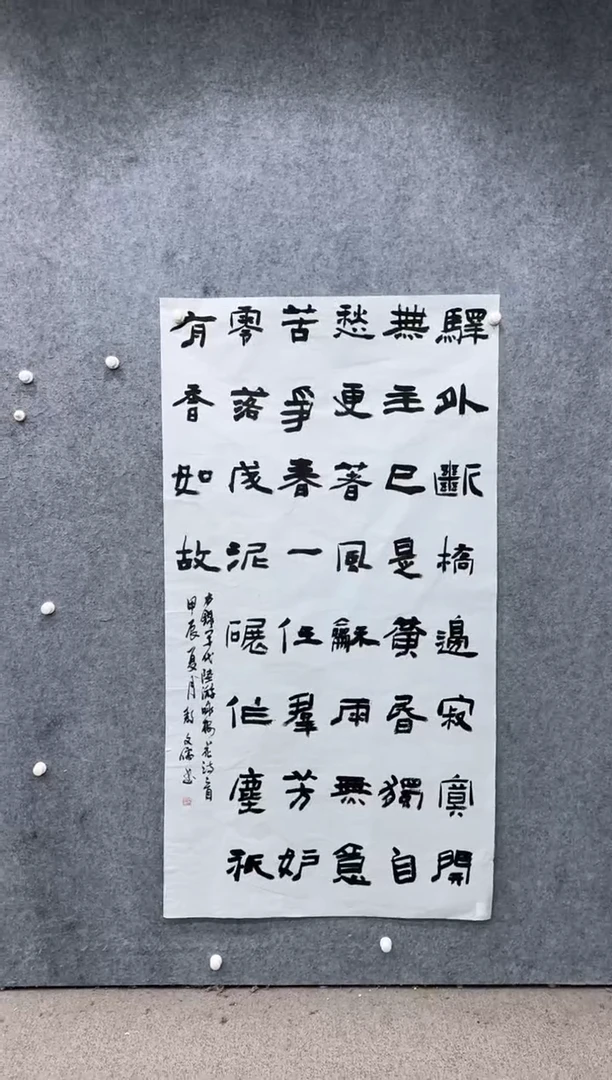 驛外斷橋邊寂寞開
無主已是黃昏獨自
愁更著風龢雨無意
苦爭春一任羣芳妒
零落成泥碾作塵秖
有香如故
右錄宋代陸游咏梅花詩一首
甲辰夏月